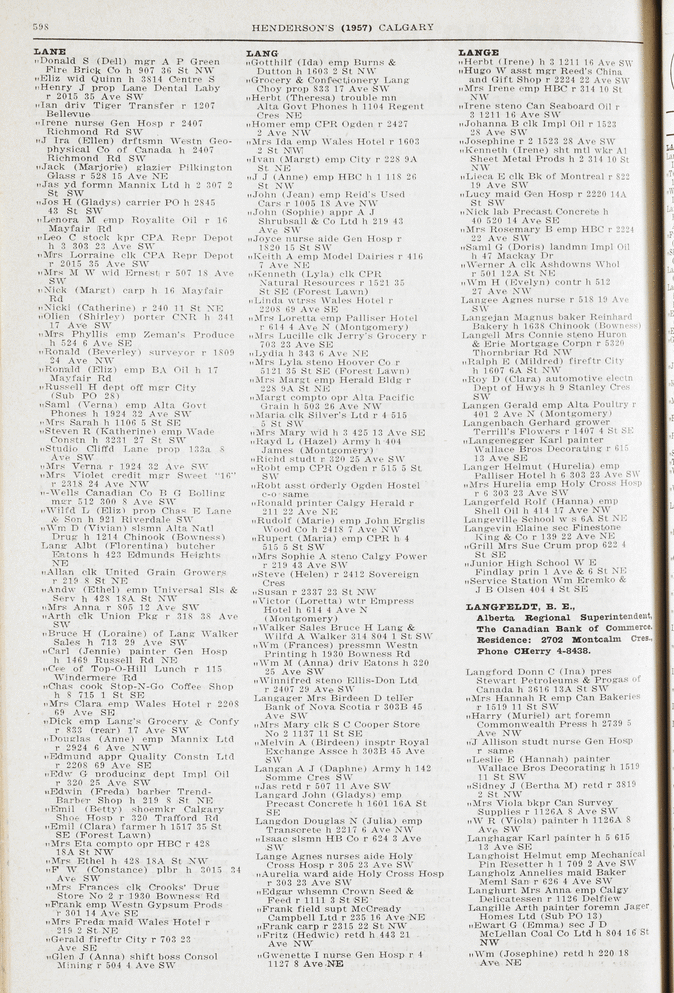 598
HENDERSON'S (1957) CALGARY
LANE
„Donald S (Dell) mgr A P Green
Fire Brick Co h 907 36 St NW
„Eliz wid Quinn h 3814 Centre S
„Henry J prop Lane Dental Laby
r 2015 35 Ave SW
„Ian driv Tiger Transfer r 1207
Bellevue
„Irene nurse Gen Hosp r 2407
Richmond Rd SW
„J Ira (Ellen) drftsmn Westn Geo-
physical Co of Canada h 2407
Richmond Rd SW
„Jack (Marjorie) glazier Pilkington
Glass r 528 15 Ave NE
„Jas yd formn Mannix Ltd h 2 307 2
St SW
„Jos H (Gladys) carrier PO h 2845
43 St SW
„Lenora M emp Royalite Oil r 16
Mayfair Rd
„Leo C stock kpr CPA Repr Depot
h 3 303 23 Ave SW
„Mrs Lorraine clk CPA Repr Depot
r 2015 35 Ave SW
„Mrs M W wid Ernest r 507 18 Ave
SW
„Nick (Margt) carp h 16 Mayfair
Rd
„Nicki (Catherine) r 240 11 St NE
„Ollen (Shirley) porter CNR h 341
17 Ave SW
„Mrs Phyllis emp Zeman's Produce
h 524 6 Ave SE
„Ronald (Beverley) surveyor r 1809
24 Ave NW
„Ronald (Eliz) emp BA Oil h 17
Mayfair Rd
„Russell H dept off mgr City
(Sub PO 28)
„Saml (Verna) emp Alta Govt
Phones h 1924 32 Ave SW
„Mrs Sarah h 1106 5 St SE
„Steven R (Katherine) emp Wade
Constn h 3231 27 St SW
„Studio Cliffd Lane prop 133a 8
Ave SW
„Mrs Verna r 1924 32 Ave SW
„Mrs Violet credit mgr Sweet "16"
r 2318 24 Ave NW
„-Wells Canadian Co B G Bolling
mgr 512 300 8 Ave SW
„Wilfd L (Eliz) prop Chas E Lane
& Son h 921 Riverdale SW
„Wm D (Vivian) slsmn Alta Natl
Drug h 1214 Chinook (Bowness)
Lang Albt (Florentina) butcher
Eatons h 423 Edmunds Heights
NE
„Allan clk United Grain Growers
r 219 8 St NE
„Andw (Ethel) emp Universal Sls &
Serv h 428 18A St NW
„Mrs Anna r 805 12 Ave SW
„Arth clk Union Pkg r 318 38 Ave
SW
„Bruce H (Loraine) of Lang Walker
Sales h 713 29 Ave SW
„Carl (Jennie) painter Gen Hosp
h 1469 Russell Rd NE
„Cee of Top-O-Hill Lunch r 115
Windermere Rd
„Chas cook Stop-N-Go Coffee Shop
h 8 715 1 St SE
„Mrs Clara emp Wales Hotel r 2208
69 Ave SE
„Dick emp Lang's Grocery & Confy
r 833 (rear) 17 Ave SW
„Douglas (Anne) emp Mannix Ltd
r 2924 6 Ave NW
„Edmund appr Quality Constn Ltd
r 2208 69 Ave SE
„Edw G producing dept Impl Oil
r 320 25 Ave SW
„Edwin (Freda) barber Trend-
Barber Shop h 219 8 St NE
„Emil (Betty) shoemkr Calgary
Shoe Hosp r 320 Trafford Rd
„Emil (Clara) farmer h 1517 35 St
SE (Forest Lawn)
„Mrs Eta compto opr HBC r 428
18A St NW
„Mrs Ethel h 428 18A St NW
„F W (Constance) plbr h 3015 34
Ave SW
„Mrs Frances clk Crooks' Drug
Store No 2 r 1930 Bowness Rd
„Frank emp Westn Gypsum Prods
r 301 14 Ave SE
„Mrs Freda maid Wales Hotel r
219 2 St NE
„Gerald fireftr City r 703 23
Ave SE
„Glen J (Anna) shift boss Consol
Mining r 504 4 Ave SW
LANG
„Gotthilf (Ida) emp Burns &
Dutton h 1603 2 St NW
„Grocery & Confectionery Lang
Choy prop 833 17 Ave SW
„Herbt (Theresa) trouble mn
Alta Govt Phones h 1104 Regent
Cres NE
„Homer emp CPR Ogden r 2427
2 Ave NW
„Mrs Ida emp Wales Hotel r 1603
2 St NW
„Ivan (Margt) emp City r 228 9A
St NE
„J J (Anne) emp HBC h 1 118 26
St NW
„John (Jean) emp Reid's Used
Cars r 1005 18 Ave NW
„John (Sophie) appr A J
Shrubsall & Co Ltd h 219 43
Ave SW
„Joyce nurse aide Gen Hosp r
1820 15 St SW
„Keith A emp Model Dairies r 416
7 Ave NE
„Kenneth (Lyla) clk CPR
Natural Resources r 1521 35
St SE (Forest Lawn)
„Linda wtrss Wales Hotel r
2208 69 Ave SE
„Mrs Loretta emp Palliser Hotel
r 614 4 Ave N (Montgomery)
„Mrs Lucille clk Jerry's Grocery r
703 23 Ave SE
„Lydia h 343 6 Ave NE
„Mrs Lyla steno Hoover Co r
5121 35 St SE (Forest Lawn)
„Mrs Margt emp Herald Bldg r
228 9A St NE
„Margt compto opr Alta Pacific
Grain h 503 26 Ave NW
„Maria clk Silver's Ltd r 4 515
5 St SW
„Mrs Mary wid h 3 425 13 Ave SE
„Rayd L (Hazel) Army h 404
James (Montgomery)
„Richd studt r 320 25 Ave SW
„Robt emp CPR Ogden r 515 5 St
SW
„Robt asst orderly Ogden Hostel
c-o same
„Ronald printer Calgy Herald r
211 22 Ave NE
„Rudolf (Marie) emp John Erglis
Wood Co h 2418 7 Ave NW
„Rupert (Maria) emp CPR h 4
515 5 St SW
„Mrs Sophie A steno Calgy Power
r 219 43 Ave SW
„Steve (Helen) r 2412 Sovereign
Cres
„Susan r 2337 23 St NW
„Victor (Loretta) wtr Empress
Hotel h 614 4 Ave N
(Montgomery)
„Walker Sales Bruce H Lang &
Wilfd A Walker 314 804 1 St SW
„Wm (Frances) pressmn Westn
Printing h 1930 Bowness Rd
„Wm M (Anna) driv Eatons h 320
25 Ave SW
„Winnifred steno Ellis-Don Ltd
r 2407 29 Ave SW
Langager Mrs Birdeen D teller
Bank of Nova Scotia r 303B 45
Ave SW
„Mrs Mary clk S C Cooper Store
No 2 1137 11 St SE
„Melvin A (Birdeen) insptr Royal
Exchange Assce h 303B 45 Ave
SW
Langan A J (Daphne) Army h 142
Somme Cres SW
„Jas retd r 507 11 Ave SW
Langard John (Gladys) emp
Precast Concrete h 1601 16A St
SE
Langdon Douglas N (Julia) emp
Transcrete h 2217 6 Ave NW
„Isaac slsmn HB Co r 624 3 Ave
SW
Lange Agnes nurses aide Holy
Cross Hosp r 305 23 Ave SW
„Aurelia ward aide Holy Cross Hosp
r 303 23 Ave SW
„Edgar whsemn Crown Seed &
Feed r 1111 3 St SE
„Frank field supt McCready
Campbell Ltd r 235 16 Ave NE
„Frank carp r 2315 22 St NW
„Fritz (Hedwic) retd h 443 21
Ave NW
„Gwenette I nurse Gen Hosp r 4
1127 8 Ave NE
LANGE
„Herbt (Irene) h 3 1211 16 Ave SW
„Hugo W asst mgr Reed's China
and Gift Shop r 2224 22 Ave SW
„Mrs Irene emp HBC r 314 10 St
NW
„Irene steno Can Seaboard Oil r
3 1211 16 Ave SW
„Johanna B clk Impl Oil r 1523
28 Ave SW
„Josephine r 2 1523 28 Ave SW
„Kenneth (Irene) sht mtl wkr A1
Sheet Metal Prods h 2 314 10 St
NW
„Lieca E clk Bk of Montreal r 822
19 Ave SW
„Lucy maid Gen Hosp r 2220 14A
St SW
„Nick lab Precast Concrete h
40 520 14 Ave SE
„Mrs Rosemary B emp HBC r 2224
22 Ave SW
„Saml G (Doris) landmn Impl Oil
h 47 Mackay Dr
„Werner A clk Ashdowns Whol
r 501 12A St NE
„Wm H (Evelyn) contr h 512
27 Ave NW
Langee Agnes nurse r 518 19 Ave
SW
Langejan Magnus baker Reinhard
Bakery h 1638 Chinook (Bowness)
Langell Mrs Connie steno Huron
& Erie Mortgage Corpn r 5320
Thornbriar Rd NW
„Ralph E (Mildred) fireftr City
h 1607 6A St NW
„Roy D (Clara) automotive electn
Dept of Hwys h 9 Stanley Cres
SW
Langen Gerald emp Alta Poultry r
401 2 Ave N (Montgomery)
Langenbach Gerhard grower
Terrill's Flowers r 1407 4 St SE
„Langenegger Karl painter
Wallace Bros Decorating r 615
13 Ave SE
Langer Helmut (Hurelia) emp
Palliser Hotel h 6 303 23 Ave SW
„Mrs Hurelia emp Holy Cross Hosp
r 6 303 23 Ave SW
Langerfeld Rolf (Hanna) emp
Shell Oil h 414 17 Ave NW
Langeville School w s 6A St NE
Langevin Elaine sec Finestone
King & Co r 139 22 Ave NE
„Grill Mrs Sue Crum prop 622 4
St SE
„Junior High School W E
Findlay prin 1 Ave & 6 St NE
„Service Station Wm Eremko &
J B Olsen 404 4 St SE
LANGFELDT, B. E.,
Alberta Regional Superintendent,
The Canadian Bank of Commerce,
Residence: 2702 Montcalm Cres.,
Phone CHerry 4-8438.
Langford Donn C (Ina) pres
Stewart Petroleums & Progas of
Canada h 3616 13A St SW
„Mrs Hannah R emp Can Bakeries
r 1519 11 St SW
„Harry (Muriel) art foremn
Commonwealth Press h 2739 5
Ave NW
„J Allison studt nurse Gen Hosp
r same
„Leslie E (Hannah) painter
Wallace Bros Decorating h 1519
11 St SW
„Sidney J (Bertha M) retd r 3819
2 St NW
„Mrs Viola bkpr Can Survey
Supplies r 1126A 8 Ave SW
„W R (Viola) painter h 1126A 8
Ave SW
Langhagar Karl painter h 5 615
13 Ave SE
Langhoist Helmut emp Mechanical
Pin Resetter h 1 709 2 Ave SW
Langholz Annelies maid Baker
Meml San r 626 4 Ave SW
Langhurt Mrs Anna emp Calgy
Delicatessen r 1126 Delfiew
Langille Arth painter foremn Jager
Homes Ltd (Sub PO 13)
„Ewart G (Emma) sec J D
McLellan Coal Co Ltd h 804 16 St
NW
„Wm (Josephine) retd h 220 18
Ave NE